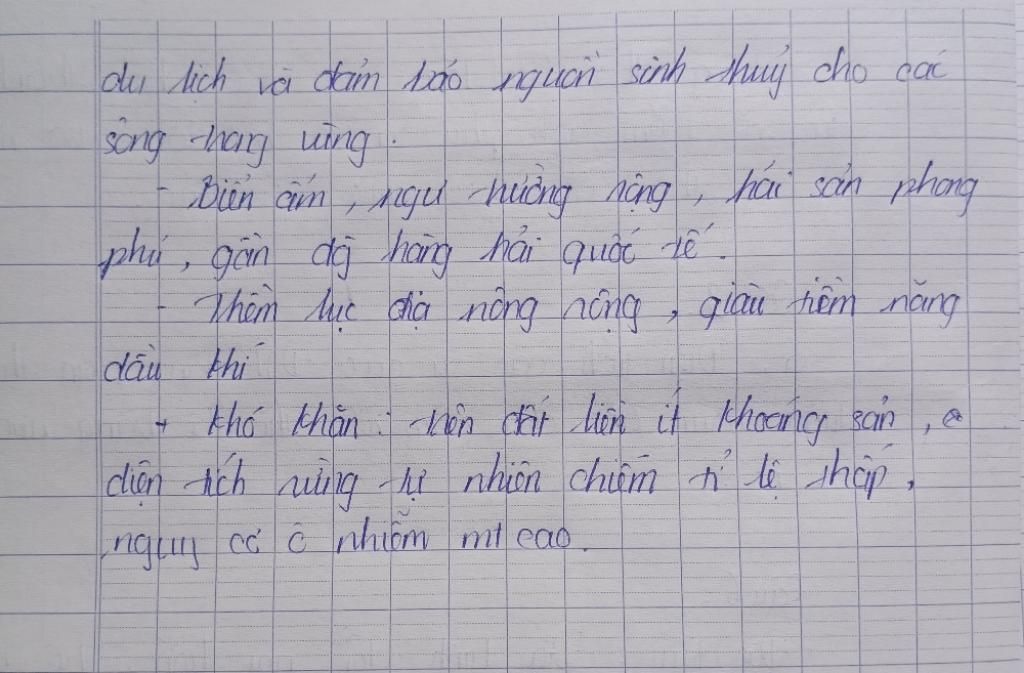 du lịch và đảm bảo nguồn sinh thuỷ cho các
sông trong vùng.
- Biển ấm, ngư trường rộng, hải sản phong
phú, gần đg hàng hải quốc tế.
- Thềm lục địa nông rộng, giàu tiềm năng
dầu khí
+ khó khăn: trên đất liền ít khoáng sản,
diện tích rừng tự nhiên chiếm tỉ lệ thấp,
nguy cơ ô nhiễm mt cao.